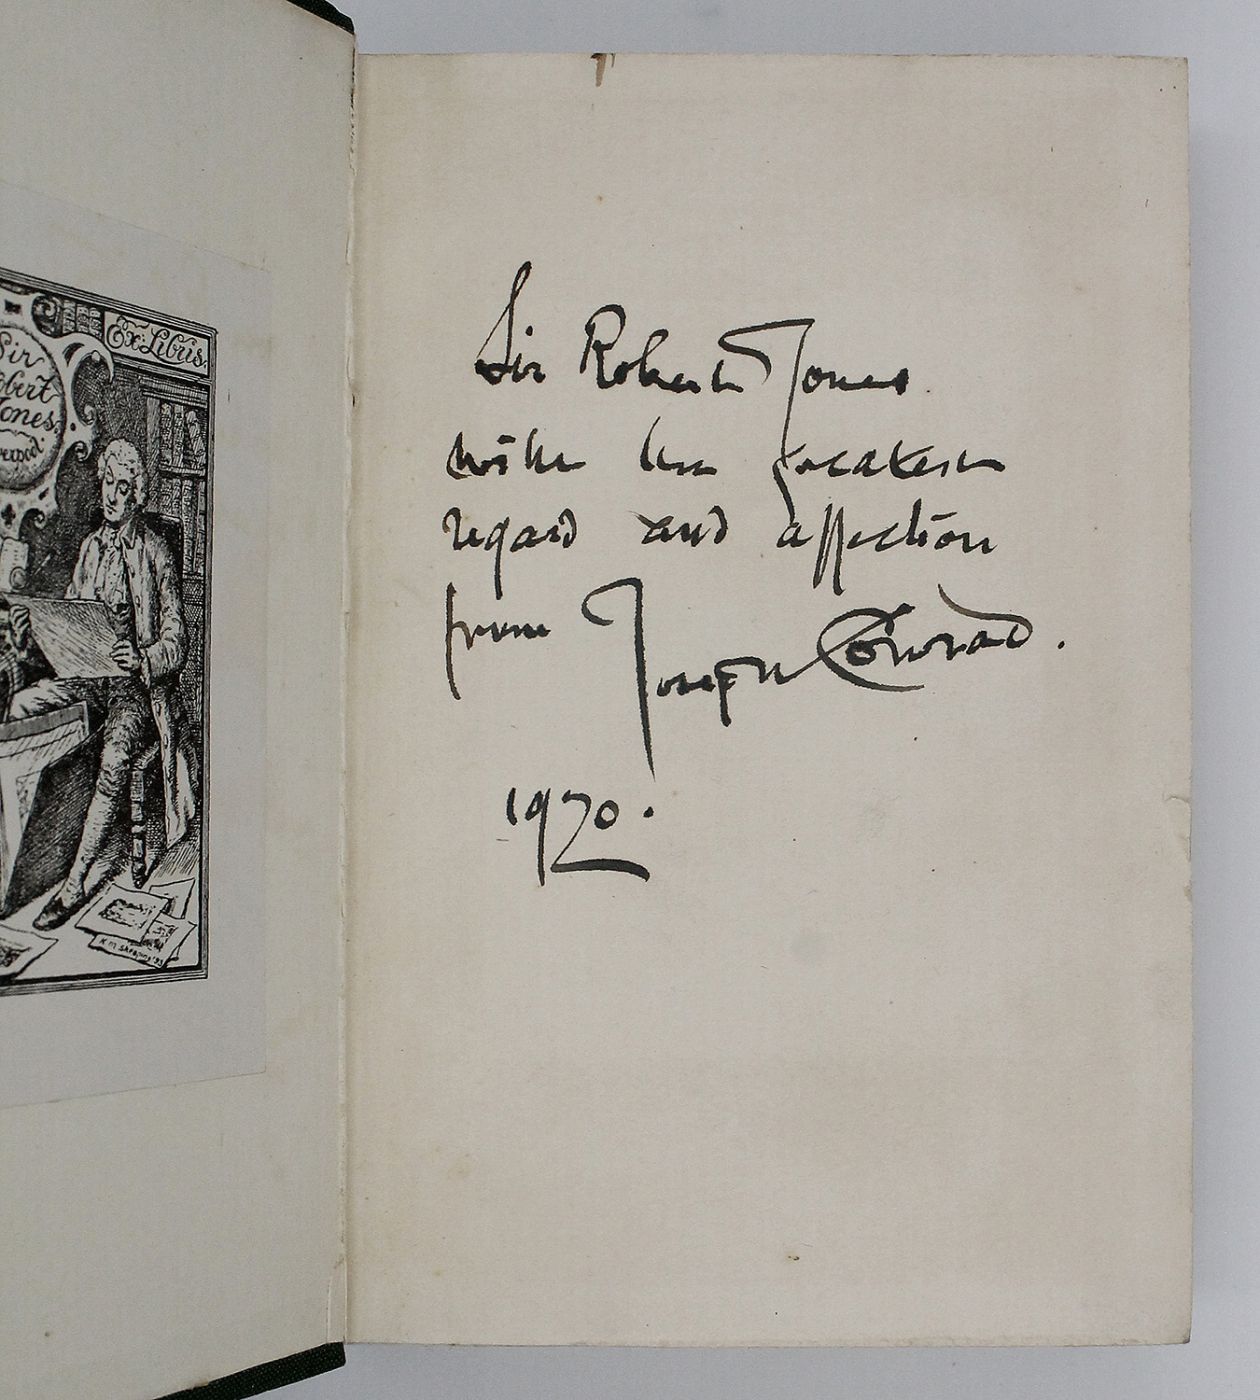 Ex Libris.
Sir
Robert
Jones.
Sir Robert Jones
with the greatest
regard and affection
from Joseph Conrad.
1920.